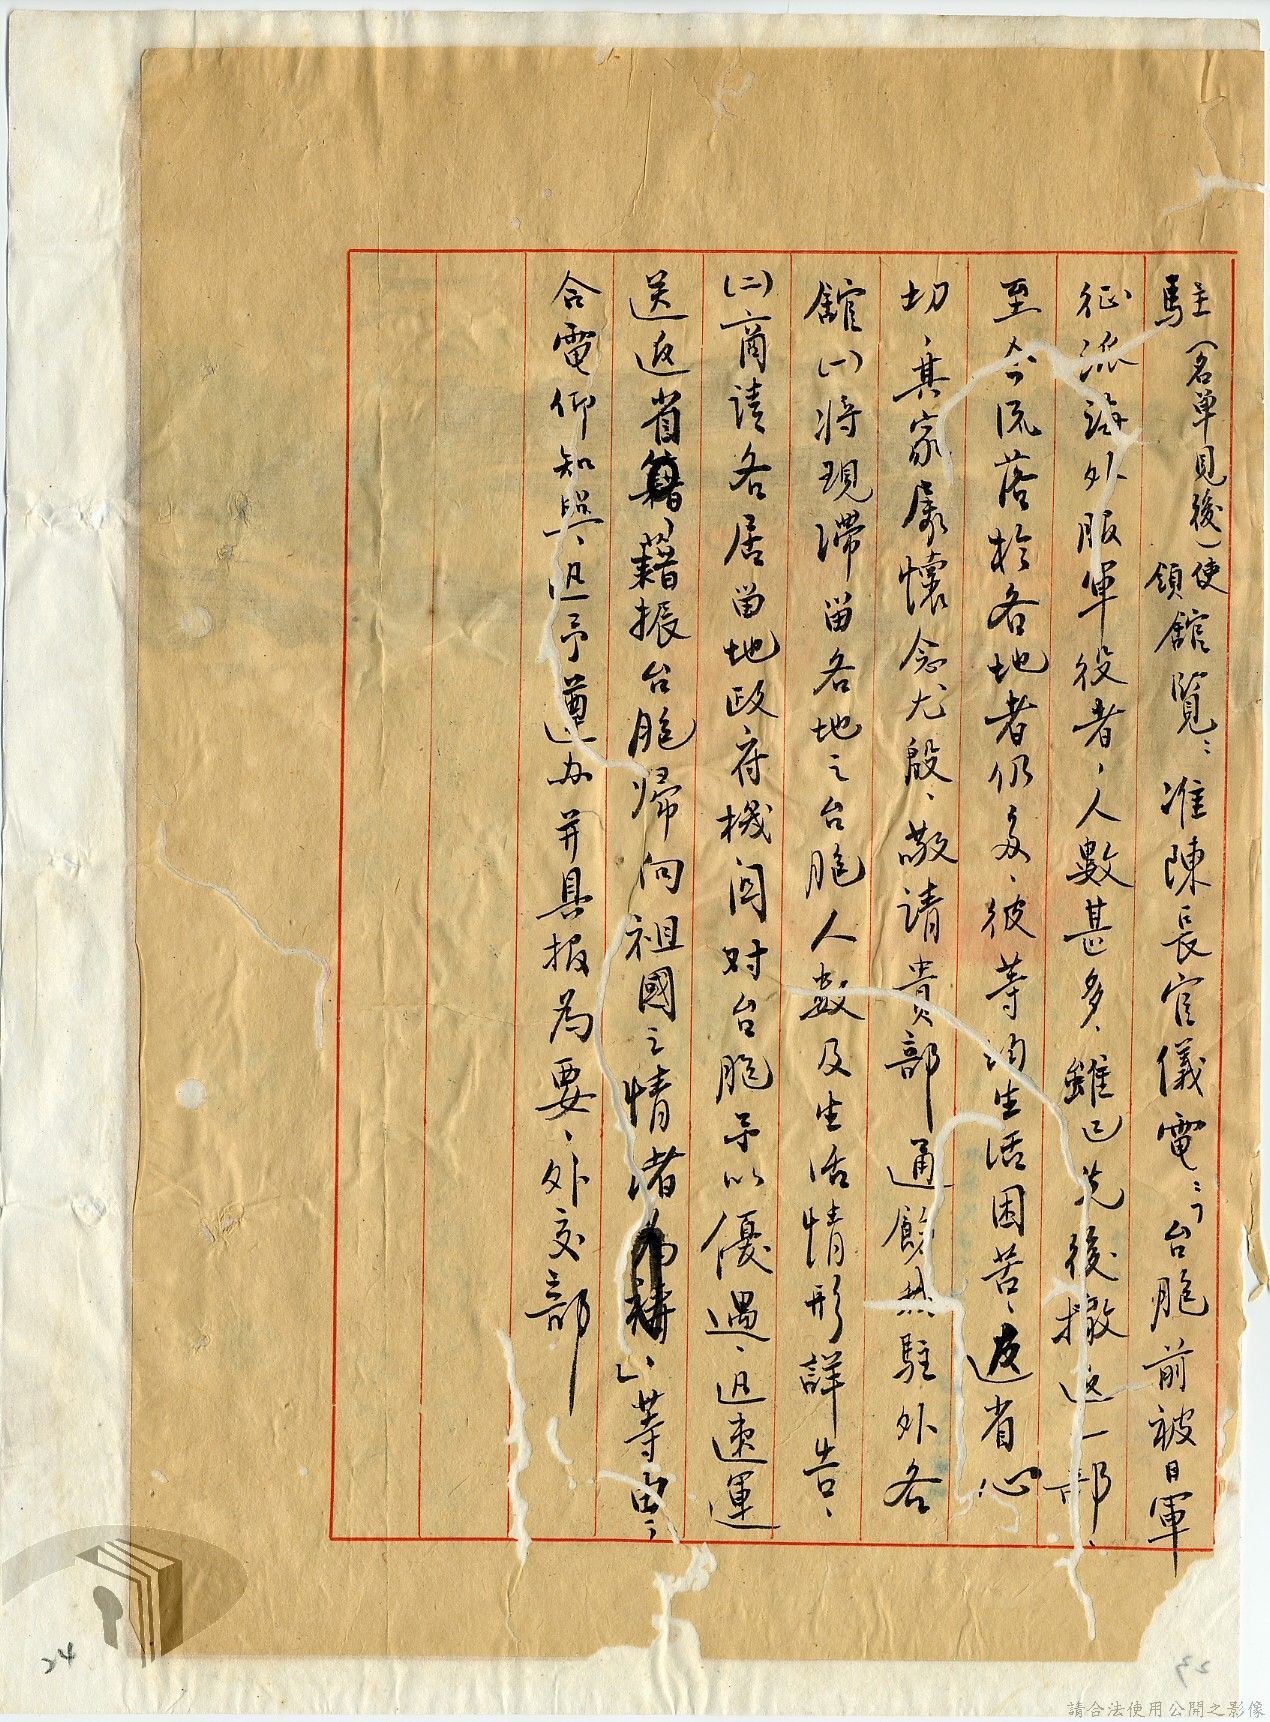 駐(名單見後)使領館覽:准陳長官儀電:「台胞前被日軍
征派海外服軍役者,人數甚多,雖已先後撤返一部,
至今流落於各地者仍多,彼等均生活困苦,返省心
切,其家屬懷念尤殷,敬請貴部通飭駐外各
館(一)將現滯留各地之台胞人數及生活情形詳告,
(二)商請各居留地政府機関对台胞予以優遇,迅速運
送返省籍振台胞歸向祖國之情者」等由,
合電仰知照,迅予遵办并具报為要,外交部
24
請合法使用公開之影像